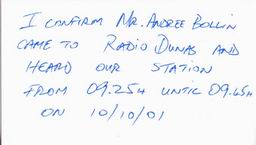 I CONFIRM MR. ANDREE BOLLIN
CAME TO RADIO DUNAS AND
HEARD OUR STATION
FROM 09.25H UNTIL 09.45H
ON 10/10/01